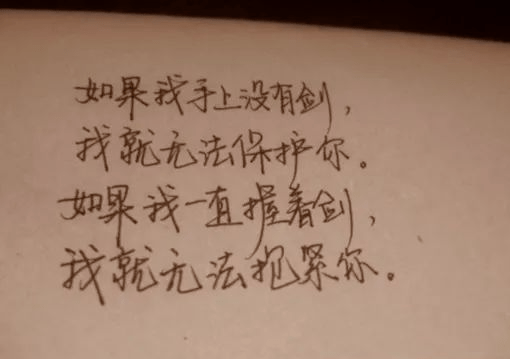 如果我手上没有剑，
我就无法保护你。
如果我一直握着剑，
我就无法抱紧你。